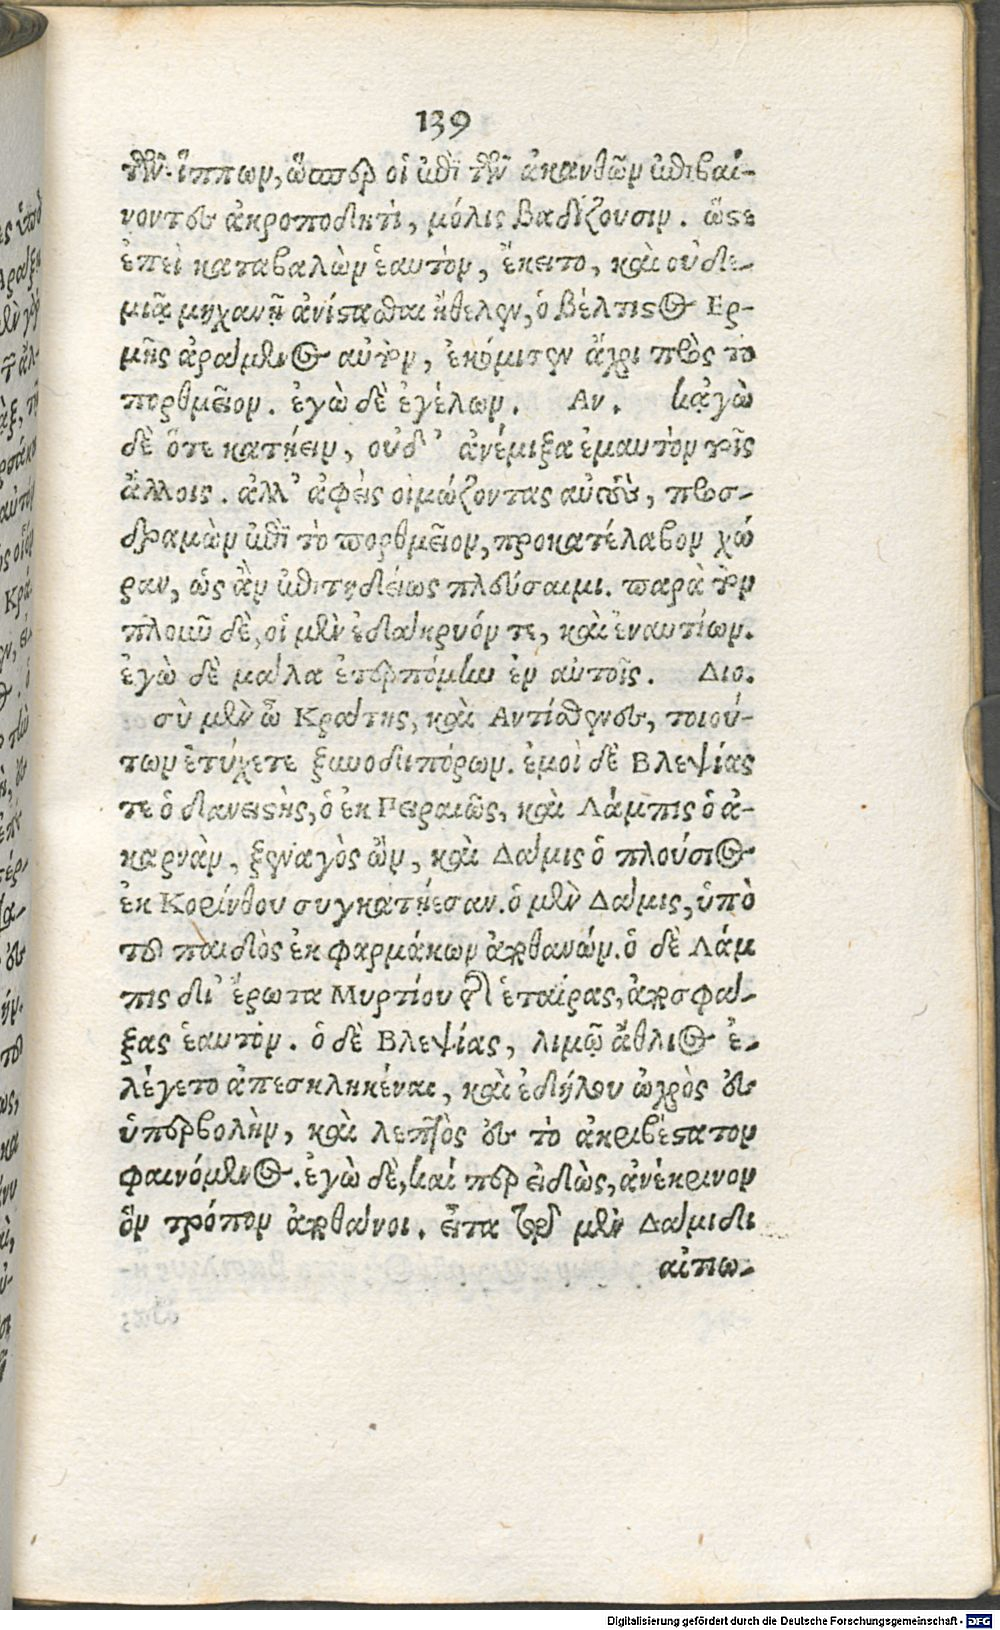 139
τῶν ἵππων, ὥσπερ οἱ ἐπὶ τῶν ἀκανθῶν ἐπιβαί-
νοντες ἀκροποδιητὶ, μόλις βαδίζουσιν. ὥστε
ἐπεὶ καταβαλὼν ἑαυτὸν, ἔκειτο, καὶ οὐδε-
μιᾷ μηχανῇ ἀνίστασθαι ἤθελεν, ὁ βέλτιστος Ερ-
μῆς ἀράμενος αὐτὸν, ἐκόμισεν ἄχρι πρὸς τὸ
πορθμεῖον. ἐγὼ δὲ ἐγέλων. Αν. κἀγὼ
δὲ ὅτε κατῄειν, οὐδ' ἀνέμιξα ἐμαυτὸν τοῖς
ἄλλοις. ἀλλ' ἀφεὶς οἰμώζοντας αὐτοὺς, προσ-
δραμὼν ἐπὶ τὸ πορθμεῖον, προκατέλαβον χώ
ραν, ὡς ἂν ἐπιτηδείως πλεύσαιμι. παρὰ τὸν
πλοιοῦ δὲ, οἱ μὲν ἐδάκρυόν τε, καὶ ἐναυτίων.
ἐγὼ δὲ μάλα ἐτερπόμην ἐν αὐτοῖς. Διο.
σὺ μὲν ὦ Κράτης, καὶ Αντίσθενες, τοιού-
των ἐτύχετε ξυνοδιπόρων. ἐμοὶ δὲ Βλεψίας
τε ὁ δανειστὴς, ὁ ἐκ Πειραιῶς, καὶ Λάμπις ὁ ἀ-
καρνὰν, ξεναγὸς ὢν, καὶ Δάμις ὁ πλούσιος
ἐκ Κορίνθου συγκατῄεσαν. ὁ μὲν Δάμις, ὑπὸ
τοῦ παιδὸς ἐκ φαρμάκων ἀποθανών. ὁ δὲ Λάμ
πις δι' ἔρωτα Μυρτίου τῆς ἑταίρας, ἀποσφά-
ξας ἑαυτόν. ὁ δὲ Βλεψίας, λιμῷ ἄθλιος ἐ-
λέγετο ἀπεσκληκέναι, καὶ ἐδήλου ὠχρὸς ἐς
ὑπερβολὴν, καὶ λεπτὸς ἐς τὸ ἀκριβέστατον
φαινόμενος. ἐγὼ δὲ, καί περ εἰδὼς, ἀνέκρινον
ὃν τρόπον ἀποθάνοι. εἶτα τῷ μὲν Δάμιδι
αἰτιω-
Digitalisierung gefördert durch die Deutsche Forschungsgemeinschaft - DFG